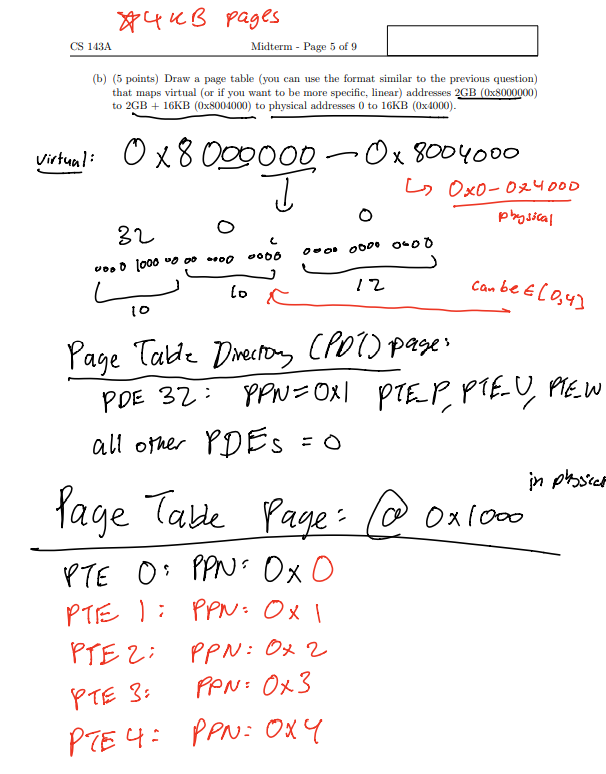 *4KB pages
CS 143A Midterm - Page 5 of 9
(b) (5 points) Draw a page table (you can use the format similar to the previous question)
that maps virtual (or if you want to be more specific, linear) addresses 2GB (0x8000000)
to 2GB + 16KB (0x8004000) to physical addresses 0 to 16KB (0x4000).
virtual: 0x8000000 — 0x8004000
↳ 0x0-0x4000
physical
32 0 0
0000 1000 00 00 0000 0000 0000 0000 0000
10 10 12 can be ∈ [0,4]
Page Table Directory (PDT) page:
PDE 32: PPN=0x1 PTE_P, PTE_U, PTE_W
all other PDEs = 0
in physical
Page Table Page: @ 0x1000
PTE 0: PPN: 0x0
PTE 1: PPN: 0x1
PTE 2: PPN: 0x2
PTE 3: PPN: 0x3
PTE 4: PPN: 0x4